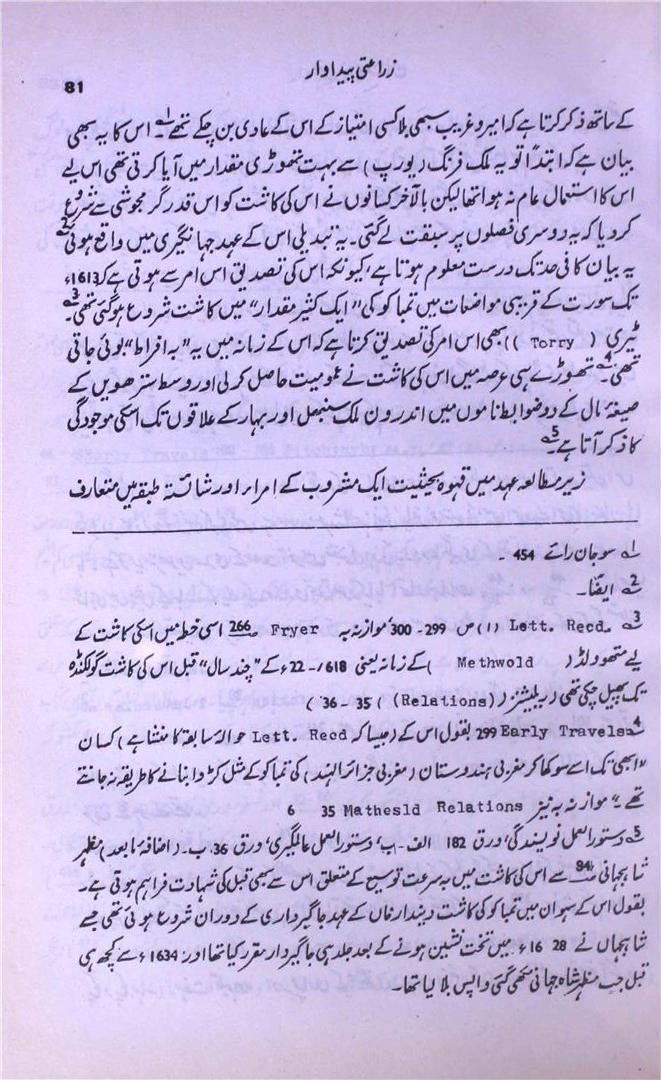 زراعتی پیداوار
81
کے ساتھ ذکر کرتا ہے کہ امیر و غریب سبھی بلا کسی امتیاز کے اس کے عادی بن چکے تھے۔ 1؎ اس کا یہ بھی
بیان ہے کہ ابتداً تو یہ ملک فرنگ (یورپ) سے بہت تھوڑی مقدار میں آیا کرتی تھی اس لیے
اس کا استعمال عام نہ ہوا تھا لیکن بالآخر کسانوں نے اس کی کاشت کو اس قدر گرمجوشی سے شروع
کر دیا کہ یہ دوسری فصلوں پر سبقت لے گئی۔ یہ تبدیلی اس کے عہد جہانگیری میں واقع ہوئی 2؎
یہ بیان کافی حد تک درست معلوم ہوتا ہے، کیونکہ اس کی تصدیق اس امر سے ہوتی ہے کہ 1613ء
تک سورت کے قریبی مواضعات میں تمباکو کی "ایک کثیر مقدار" میں کاشت شروع ہو گئی تھی۔ 3؎
ٹیری ( Torry )) بھی اس امر کی تصدیق کرتا ہے کہ اس کے زمانہ میں یہ "بہ افراط" بوئی جاتی
تھی۔ 4؎ تھوڑے ہی عرصہ میں اس کی کاشت نے عمومیت حاصل کر لی اور وسط سترھویں کے
صیغۂ مال کے دو ضوابط ناموں میں اندرون ملک سنبھل اور بہار کے علاقوں تک اسکی موجودگی
کا ذکر آتا ہے۔ 5؎
زیر مطالعہ عہد میں قہوہ بحیثیت ایک مشروب کے امراء اور شائستہ طبقہ میں متعارف
1؎ سوجان رائے 454 ۔
2؎ ایضًا۔
3؎ Lett. Recd. (۱) ص 299۔ 300 موازنہ بہ Fryer صـ 266 اسی خط میں اسکی کاشت کے
لیے متھوولڈ ( Methwold )کے زمانہ یعنی 1618۔22ء کے "چند سال" قبل اس کی کاشت گولکنڈہ
تک پھیل چکی تھی (ریلیشنز ( (Relations) 35 - 36 ۔
4؎ Early Travels 299 بقول اس کے (جیسا کہ Lett. Recd حوالہ سابقہ کا منشا ہے) کسان
"ابھی تک اسے سوکھا کر مغربی ہندوستان (مغربی جزائر الہند) کی تمباکو کے مثل کڑوا بنانے کا طریقہ نہ جانتے
تھے۔" موازنہ بہ نیز Mathesld Relations 35 6
5؎ دستور العمل نویسندگی، ورق 182 الف۔ب، دستور العمل عالمگیری، ورق 36۔ب۔ (اضافہ مابعد) مظہر
شاہجہانی صـ 84 سے اس کی کاشت میں بہ سرعت توسیع کے متعلق اس سے بھی قبل کی شہادت فراہم ہوتی ہے۔
بقول اس کے سہوان میں تمباکو کی کاشت دیندار خاں کے عہد جاگیرداری کے دوران شروع ہوئی تھی جسے
شاہجہاں نے 28 16ء میں تخت نشین ہونے کے بعد جلد ہی جاگیردار مقرر کیا تھا اور 1634ء سے کچھ ہی
قبل جب مظہر شاہ جہانی لکھی گئی واپس بلا لیا تھا۔